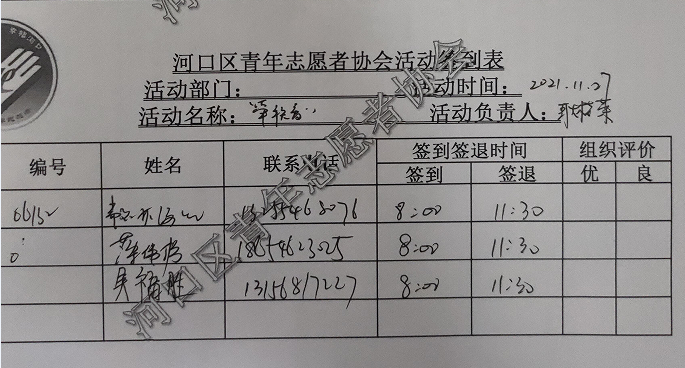 幸福河口
河口区青年志愿者协会活动签到表
活动部门： 活动时间：2021.11.27
活动名称： 活动负责人：
编号 姓名 联系电话 签到签退时间 组织评价
签到 签退 优 良
8:00 11:30
18654623025 8:00 11:30
吴福胜 13156817227 8:00 11:30
河口区青年志愿者协会